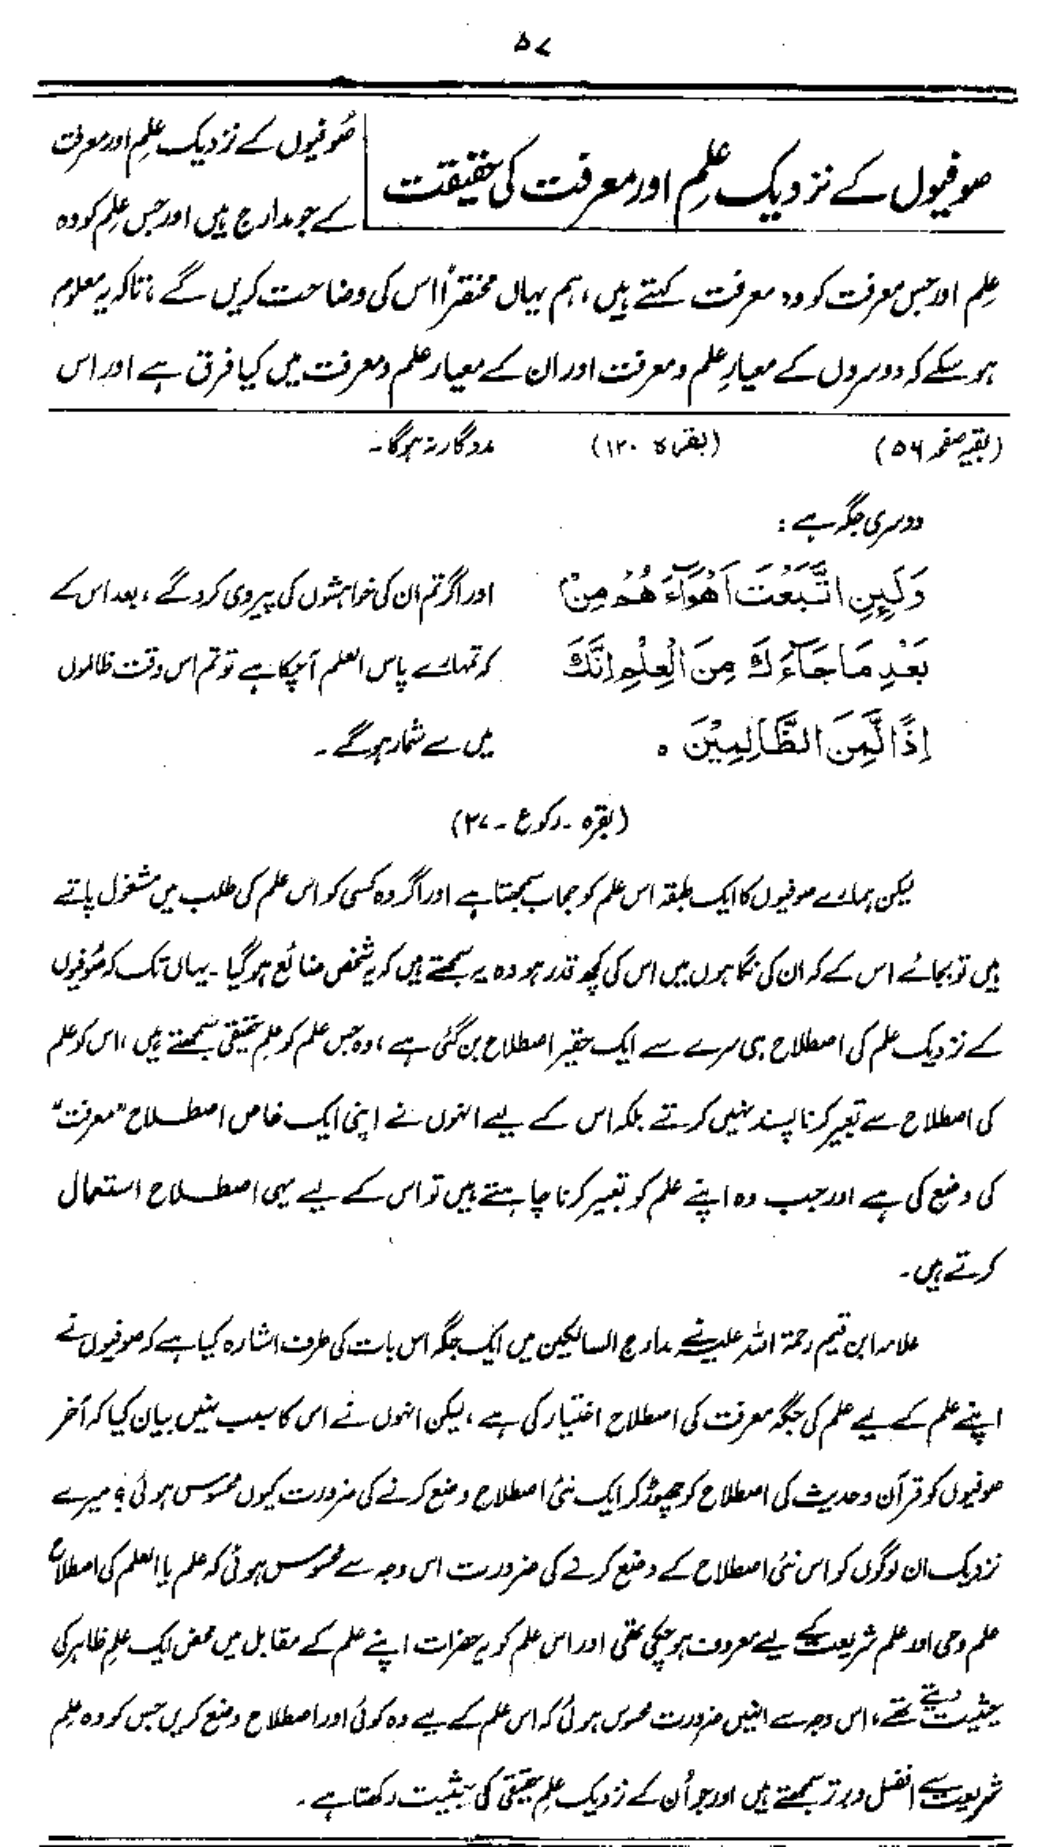 ۵۷
صوفیوں کے نزدیک علم اور معرفت کی حقیقت
صُوفیوں کے نزدیک علم اور معرفت
کے جو مدارج ہیں اور جس علم کو وہ
علم اور جس معرفت کو وہ معرفت کہتے ہیں، ہم یہاں مختصراً اس کی وضاحت کریں گے، تاکہ یہ معلوم
ہو سکے کہ دوسروں کے معیارِ علم و معرفت اور ان کے معیار علم و معرفت میں کیا فرق ہے اور اس
(بقیہ صفحہ ۵۶) (بقرہ ۱۲۰) مددگار نہ ہوگا۔
دوسری جگہ ہے :
وَلَئِنِ اتَّبَعْتَ اَهْوَآءَ هُمْ مِنْۢ اور اگر تم ان کی خواہشوں کی پیروی کرو گے، بعد اس کے
بَعْدِ مَا جَآءَكَ مِنَ الْعِلْمِ اِنَّكَ کہ تمہارے پاس العلم آچکا ہے تو تم اس وقت ظالموں
اِذًا لَّمِنَ الظَّالِمِيْنَ ه میں سے شمار ہو گے۔
(بقرہ ۔ رکوع ۔ ۲۷)
لیکن ہمارے صوفیوں کا ایک طبقہ اس علم کو حجاب سمجھتا ہے اور اگر وہ کسی کو اس علم کی طلب میں مشغول پاتے
ہیں تو بجائے اس کے کہ ان کی نگاہوں میں اس کی کچھ قدر ہو وہ یہ سمجھتے ہیں کہ یہ شخص ضائع ہو گیا۔ یہاں تک کہ صُوفیوں
کے نزدیک علم کی اصطلاح ہی سرے سے ایک حقیر اصطلاح بن گئی ہے، وہ جس علم کو علمِ حقیقی سمجھتے ہیں، اس کو علم
کی اصطلاح سے تعبیر کرنا پسند نہیں کرتے بلکہ اس کے لیے انہوں نے اپنی ایک خاص اصطلاح "معرفت"
کی وضع کی ہے اور جب وہ اپنے علم کو تعبیر کرنا چاہتے ہیں تو اس کے لیے یہی اصطلاح استعمال
کرتے ہیں۔
علامہ ابن قیم رحمۃ اللہ علیہ نے مدارج السالکین میں ایک جگہ اس بات کی طرف اشارہ کیا ہے کہ صوفیوں نے
اپنے علم کے لیے علم کی جگہ معرفت کی اصطلاح اختیار کی ہے، لیکن انہوں نے اس کا سبب نہیں بیان کیا کہ آخر
صوفیوں کو قرآن و حدیث کی اصطلاح کو چھوڑ کر ایک نئی اصطلاح وضع کرنے کی ضرورت کیوں محسوس ہوئی؟ میرے
نزدیک ان لوگوں کو اس نئی اصطلاح کے وضع کرنے کی ضرورت اس وجہ سے محسوس ہوئی کہ علم یا العلم کی اصطلاح
علم وحی اور علم شریعت کے لیے معروف ہو چکی تھی اور اس علم کو یہ حضرات اپنے علم کے مقابل میں محض ایک علمِ ظاہر کی
حیثیت دیتے تھے، اس وجہ سے انہیں ضرورت محسوس ہوئی کہ اس علم کے لیے وہ کوئی اور اصطلاح وضع کریں جس کو وہ علم
شریعت سے افضل و برتر سمجھتے ہیں اور جو اُن کے نزدیک علمِ حقیقی کی حیثیت رکھتا ہے۔